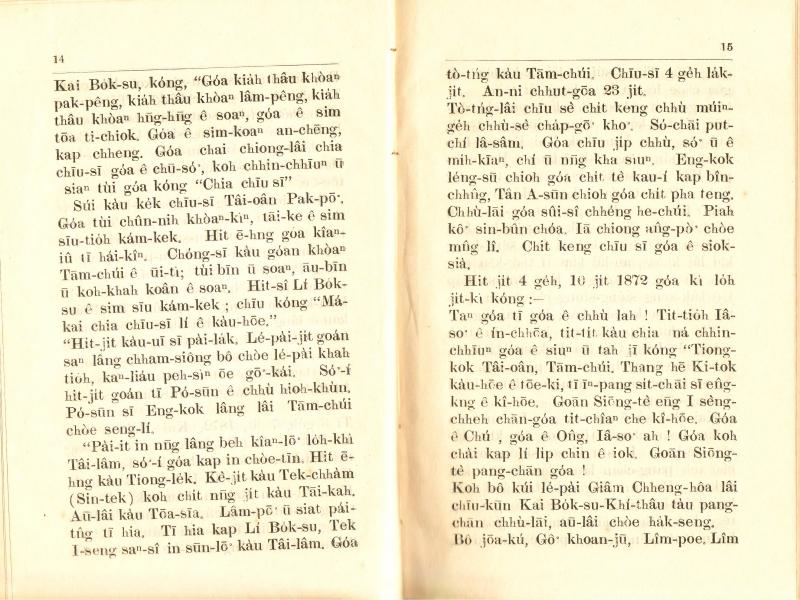 14
Kai Bo̍k-su, kóng, “Góa kia̍h thâu khòaⁿ
pak-pêng, kia̍h thâu khòaⁿ lâm-pêng, kia̍h
thâu khòaⁿ hn̄g-hn̄g ê soaⁿ, góa ê sim
tōa ti-chiok. Góa ê sim-koaⁿ an-chēng,
kap chheng. Góa chai chiong-lâi chia
chīu-sī góa ê chū-só͘, koh chhin-chhīuⁿ ū
siaⁿ tùi góa kóng “Chia chīu sī”
Súi kàu ke̍k chīu-sī Tâi-oân Pak-pō͘.
Góa tùi chûn-nih khòaⁿ-kìⁿ, tāi-ke ê sim
sīu-tio̍h kám-kek. Hit ē-hng góa kîaⁿ-
iû tī hái-kîⁿ. Chóng-sī kàu góan khòaⁿ
Tām-chúi ê ūi-tì; tùi bīn ū soaⁿ, āu-bīn
ū koh-khah koân ê soaⁿ. Hit-sî Lí Bo̍k-
su ê sim sīu kám-kek ; chīu kóng “Má-
kai chia chīu-sī lí ê kàu-hōe.”
“Hit-ji̍t kàu-uī sī pài-la̍k. Lé-pài-ji̍t goán
saⁿ lâng chham-siông bô chòe lé-pài khah
tio̍h, kaⁿ-liáu peh-sìⁿ ōe gō͘-kái. Só͘-í
hit-ji̍t goán tī Pó-sūn ê chhù hioh-khùn.
Pó-sūn sī Eng-kok lâng lâi Tām-chúi
chòe seng-lí.
“Pài-it in nn̄g lâng beh kîaⁿ-lō͘ lo̍h-khì
Tâi-lâm, só͘-í góa kap in chòe-tīn. Hit ē-
hng kàu Tiong-le̍k. Kè-ji̍t kàu Tek-chhàm
(Sin-tek) koh chit nn̄g ji̍t kàu Tāi-kah.
Aū-lâi kàu Tōa-sīa. Lâm-pō͘ ū siat pái-
tn̂g tī hia. Tī hia kap Lí Bo̍k-su, Tek
I-seng saⁿ-sî in sūn-lō͘ kàu Tâi-lâm. Góa
15
tò-tn̂g kàu Tām-chúi. Chīu-sī 4 ge̍h la̍k-
ji̍t. An-ni chhut-gōa 23 ji̍t.
Tò-tn̂g-lâi chīu sè chi̍t keng chhù múiⁿ-
ge̍h chhù-sè cha̍p-gō͘ kho͘. Só-chāi put-
chí lâ-sâm. Góa chīu ji̍p chhù, só͘ ū ê
mi̍h-kīaⁿ, chí ū nn̄g kha sīuⁿ. Eng-kok
léng-sū chioh góa chi̍t tè kau-í kap bîn-
chhn̂g, Tân A-sūn chioh góa chi̍t pha teng.
Chhù-lāi góa sûi-sî chhéng he-chúi. Piah
kô͘ sin-bûn chóa. Iā chiong âng-pò͘ chòe
mn̂g lî. Chit keng chīu sī góa ê siok-
sià.
Hit ji̍t 4 ge̍h, 10 ji̍t 1872 góa kì lo̍h
ji̍t-kì kóng :—
Taⁿ góa tī góa ê chhù lah ! Tit-tio̍h Iâ-
so͘ ê ín-chhōa, tit-ti̍t kàu chia ná chhin-
chhīuⁿ góa ê siuⁿ ū tah jī kóng “Tiong-
kok Tâi-oân, Tām-chúi. Thang hē Ki-tok
kàu-hōe ê tōe-ki, tī īⁿ-pang sit-chāi sī eńg-
kng ê kî-hōe. Goān Siōng-tè eńg I sèng-
chheh chān-góa tit-chîaⁿ che kî-hōe. Góa
ê Chú , góa ê Ông, Iâ-so͘ ah ! Góa koh
chài kap lí li̍p chin ê iok. Goān Siōng-
tè pang-chān góa !
Koh bô kúi lé-pài Giâm Chheng-hôa lâi
chīu-kūn Kai Bo̍k-su-Khí-thâu tàu pang-
chān chhù-lāi, aū-lâi chòe ha̍k-seng.
Bô jōa-kú, Gô͘ khoan-jū, Lîm-poe, Lîm